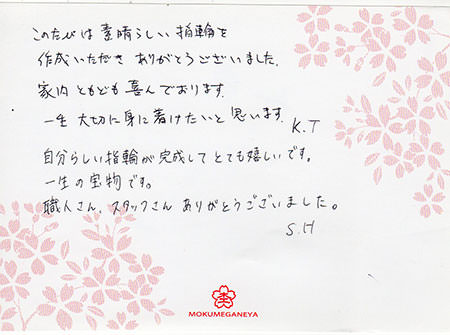 このたびは素晴らしい指輪を
作成いただき ありがとうございました。
家内ともども喜んでおります。
一生 大切に身に着けたいと思います。
K.T
自分らしい指輪が完成してとても嬉しいです。
一生の宝物です。
職人さん、スタッフさん ありがとうございました。
S.H
MOKUMEGANEYA